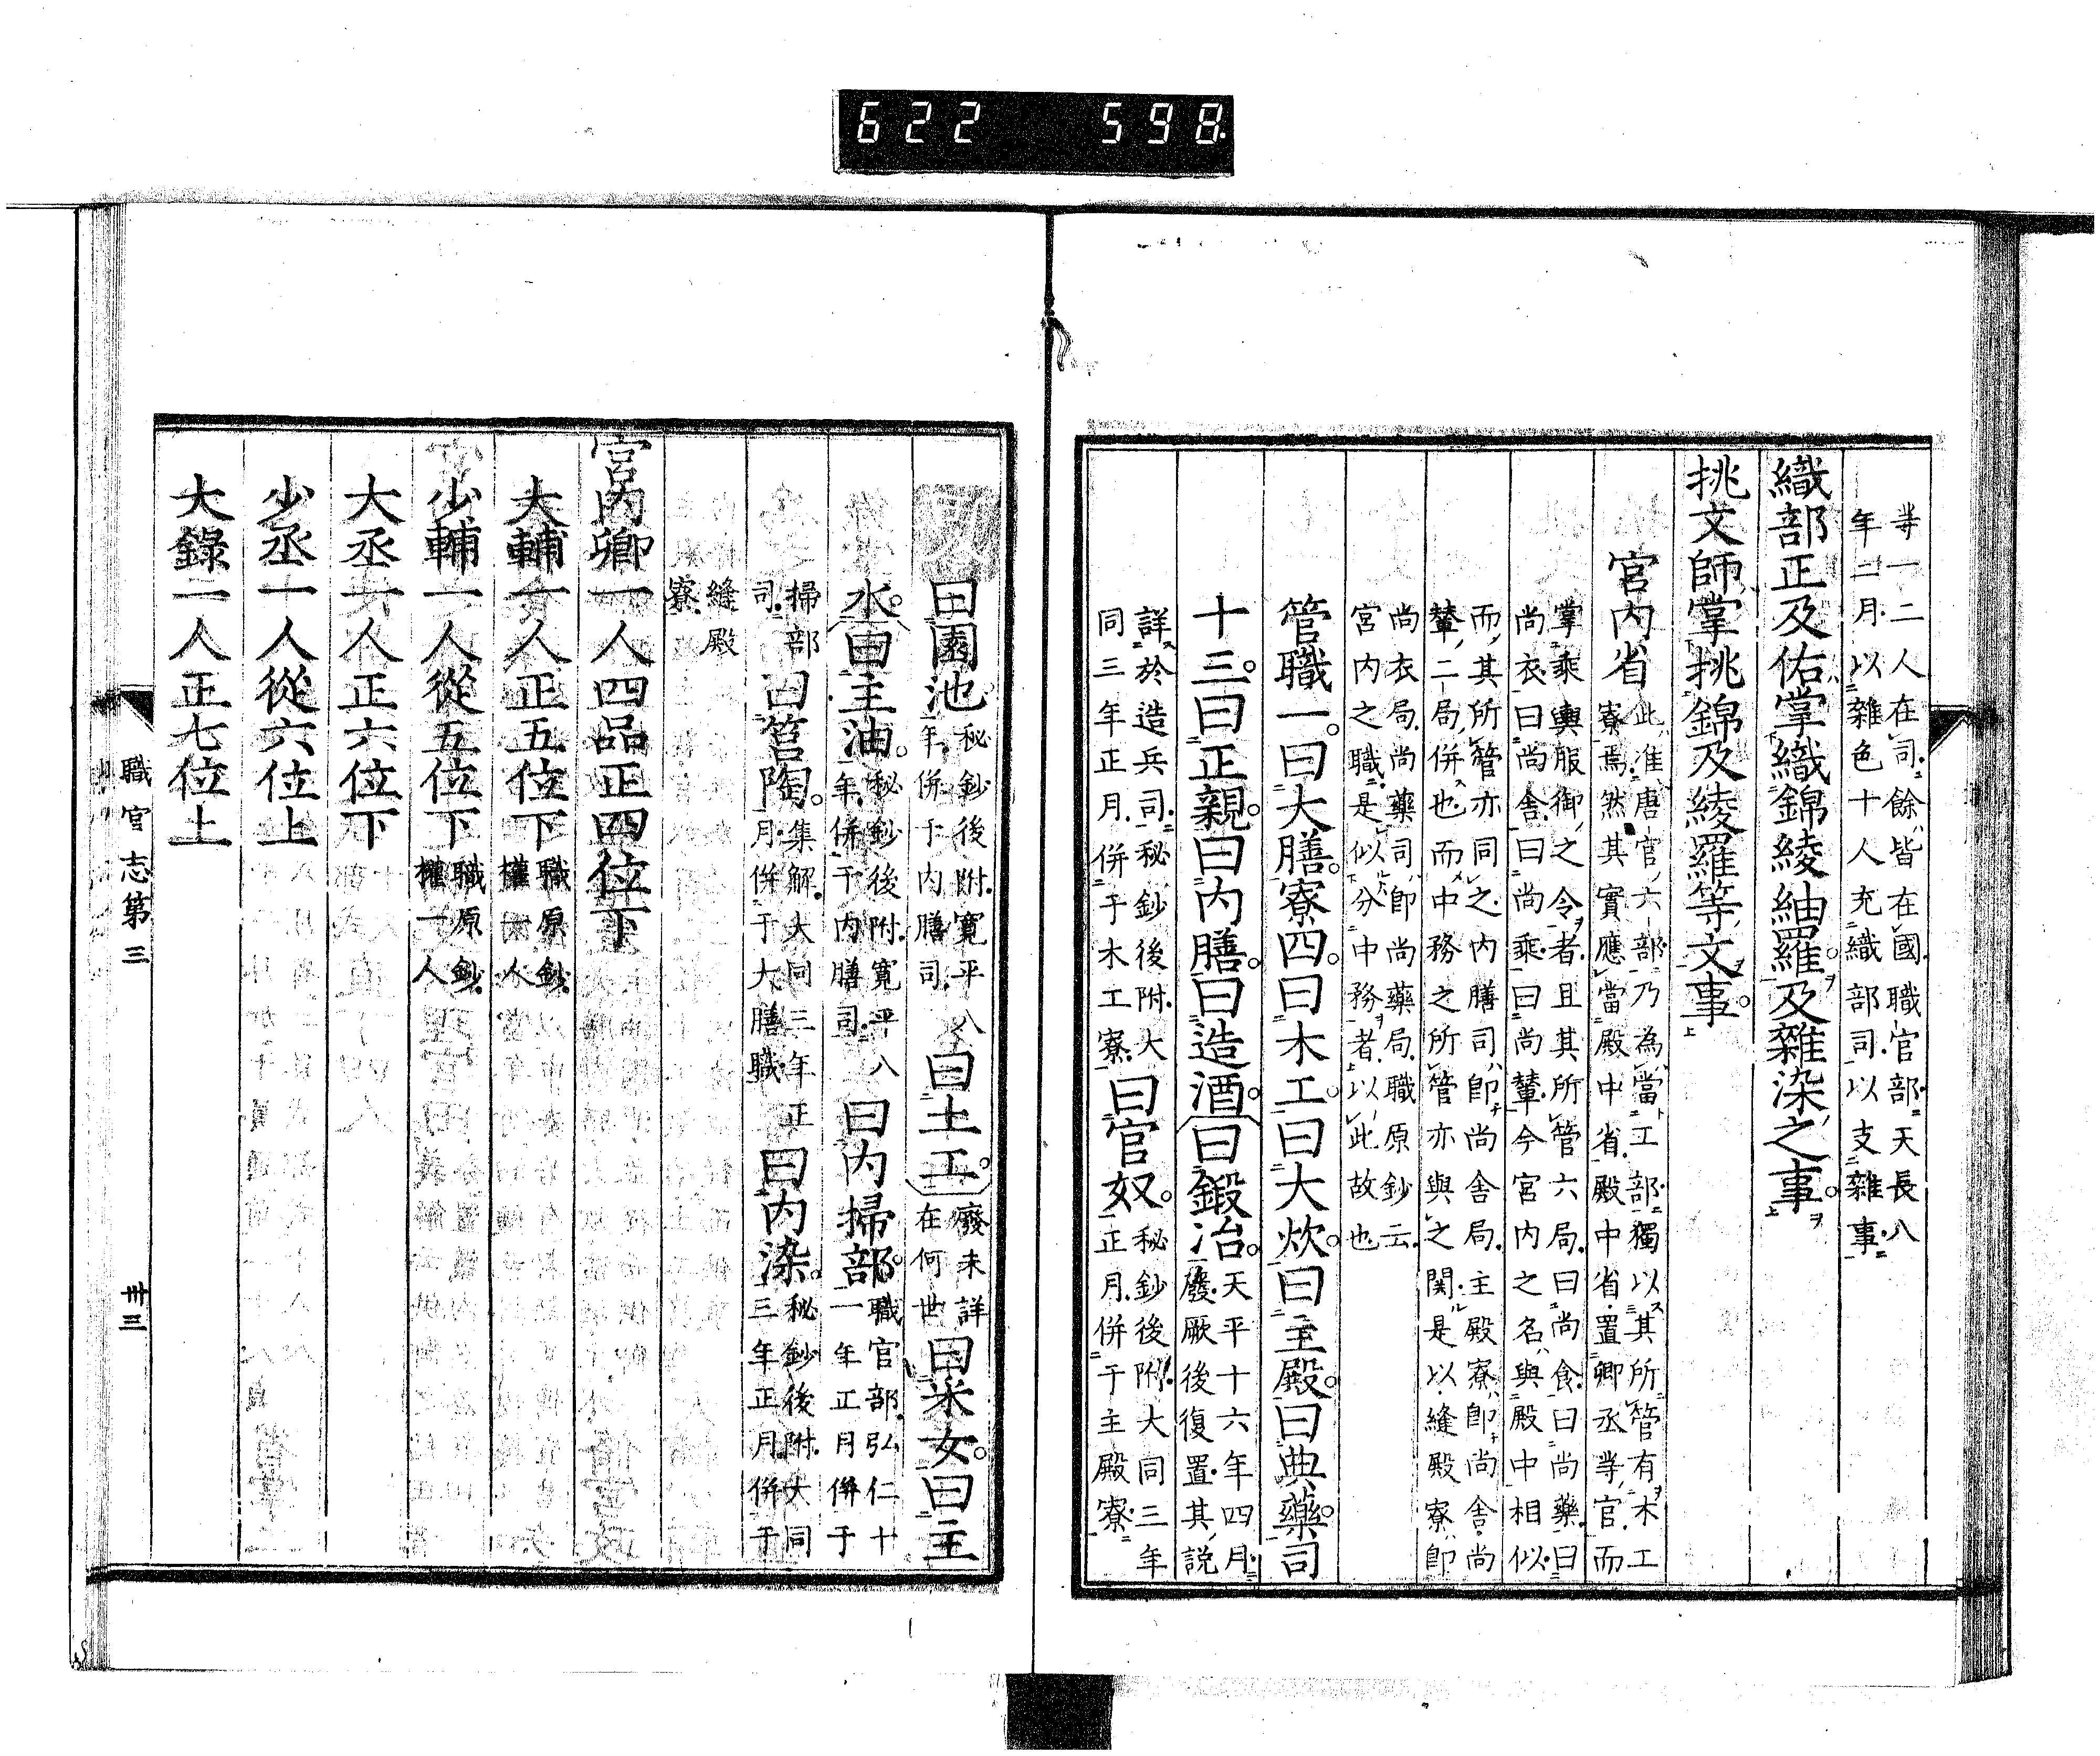 622 598
等一二人在司餘皆在國職官部天長八
年二月以雜色十人充織部司以支雜事
織部正及佑掌織錦綾紬羅及雜染之事
挑文師掌挑錦及綾羅等文事
宮内省
此准唐官六部乃為當工部獨以其所管有木工
寮焉然其實應當殿中省殿中省置卿丞等官而
掌乘輿服御之令者且其所管六局曰尚食曰尚藥曰
尚衣曰尚舎曰尚乘曰尚輦今宮内之名與殿中相似
而其所管亦同之内膳司即尚舎局主殿寮即尚舎尚
輦二局併也而中務之所管亦與之関是以縫殿寮即
尚衣局尚藥司即尚藥局職原鈔云
宮内之職是似分中務者以此故也
管職一曰大膳寮四曰木工曰大炊曰主殿曰典藥司
十三曰正親曰内膳曰造酒曰鍛冶
天平十六年四月
廢厥後復置其説
詳於造兵司秘鈔後附大
同三年正月併于木工寮
曰官奴
秘鈔後附大同三年
正月併于主殿寮
曰園池
秘鈔後附寛平八
年併于内膳司
曰土工
廢未詳
在何世
曰采女曰主
水曰主油
秘鈔後附寛平八
年併于内膳司
曰内掃部
職官部弘仁十
一年正月併于
掃部
司
曰筥陶
集解大同三年正
月併于大膳職
曰内染
秘鈔後附大同
三年正月併于
縫殿
寮
宮内卿一人四品正四位下
大輔一人正五位下
職原鈔
權一人
少輔一人從五位下
職原鈔
權一人
大丞一人正六位下
少丞一人從六位上
大錄一人正七位上
職官志第三
卅三